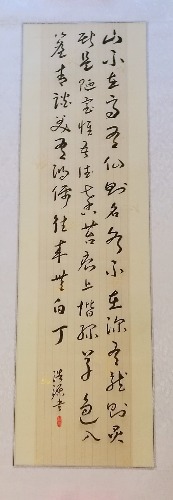 山不在高有仙则名水不在深有龍则灵
斯是陋室惟吾德馨苔痕上階綠草色入
簾青談笑有鴻儒往来無白丁